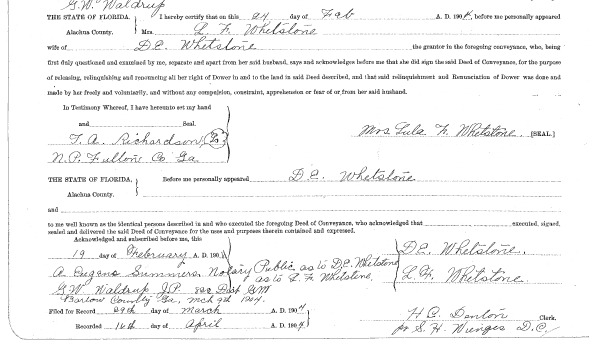 G.W. Waldrup
THE STATE OF FLORIDA. I hereby certify that on this 24 day of Feb A. D. 1904, before me personally appeared
Alachua County. Mrs. L. F. Whetstone
wife of D.E. Whetstone the grantor in the foregoing conveyance, who, being
first duly questioned and examined by me, separate and apart from her said husband, says and acknowledges before me that she did sign the said Deed of Conveyance, for the purpose
of releasing, relinquishing and renouncing all her right of Dower in and to the land in said Deed described, and that said relinquishment and Renunciation of Dower was done and
made by her freely and voluntarily, and without any compulsion, constraint, apprehension or fear of or from her said husband.
In Testimony Whereof, I have hereunto set my hand
and Seal.
T. A. Richardson
Mrs Lula F. Whetstone. [SEAL.]
N.P. Fulton Co Ga.
THE STATE OF FLORIDA. Before me personally appeared D.E. Whetstone
Alachua County.
and
to me well known as the identical persons described in and who executed the foregoing Deed of Conveyance, who acknowledged that executed, signed,
sealed and delivered the said Deed of Conveyance for the uses and purposes therein contained and expressed.
Acknowledged and subscribed before me, this
19 day of February A. D. 190
D.E. Whetstone.
A. Eugene Summers, Notary Public as to D.E. Whetstone
as to L. F. Whetstone.
L.F. Whetstone.
G.W. Waldrup J.P. Dist G.M
Bartow County Ga, Mch 9th 1904.
Filed for Record 29th day of March A. D. 190 4
H C. Denton Clerk.
Recorded 16th day of April A. D. 190 4.
pr S. H. Wienges D.C.